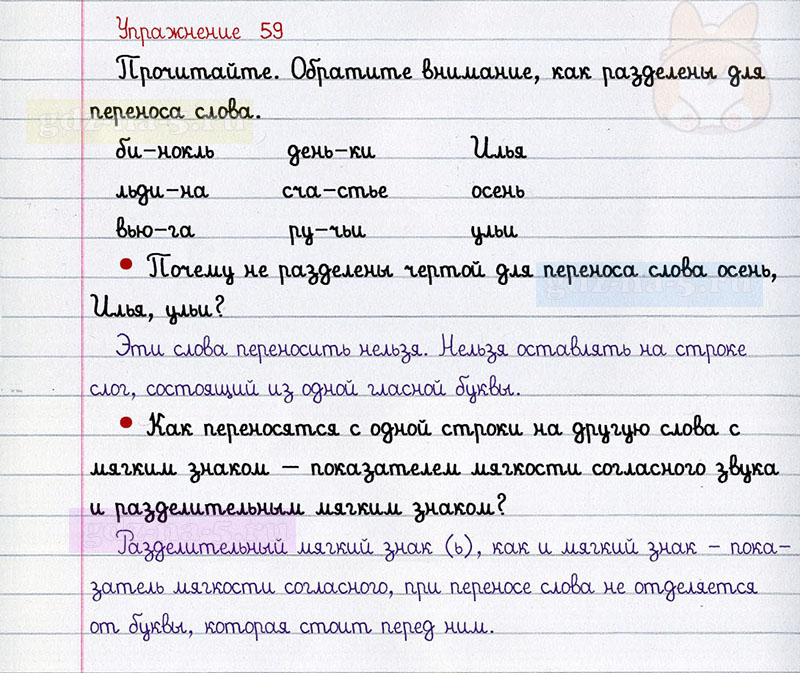 Упражнение 59
Прочитайте. Обратите внимание, как разделены для
переноса слова.
би-нокль день-ки Илья
льди-на сча-стье осень
вью-га ру-чьи ульи
• Почему не разделены чертой для переноса слова осень,
Илья, ульи?
Эти слова переносить нельзя. Нельзя оставлять на строке
слог, состоящий из одной гласной буквы.
• Как переносятся с одной строки на другую слова с
мягким знаком – показателем мягкости согласного звука
и разделительным мягким знаком?
Разделительный мягкий знак (ь), как и мягкий знак – пока-
затель мягкости согласного, при переносе слова не отделяется
от буквы, которая стоит перед ним.
gdz-na-5.ru
gdz-na-5.ru
gdz-na-5.ru